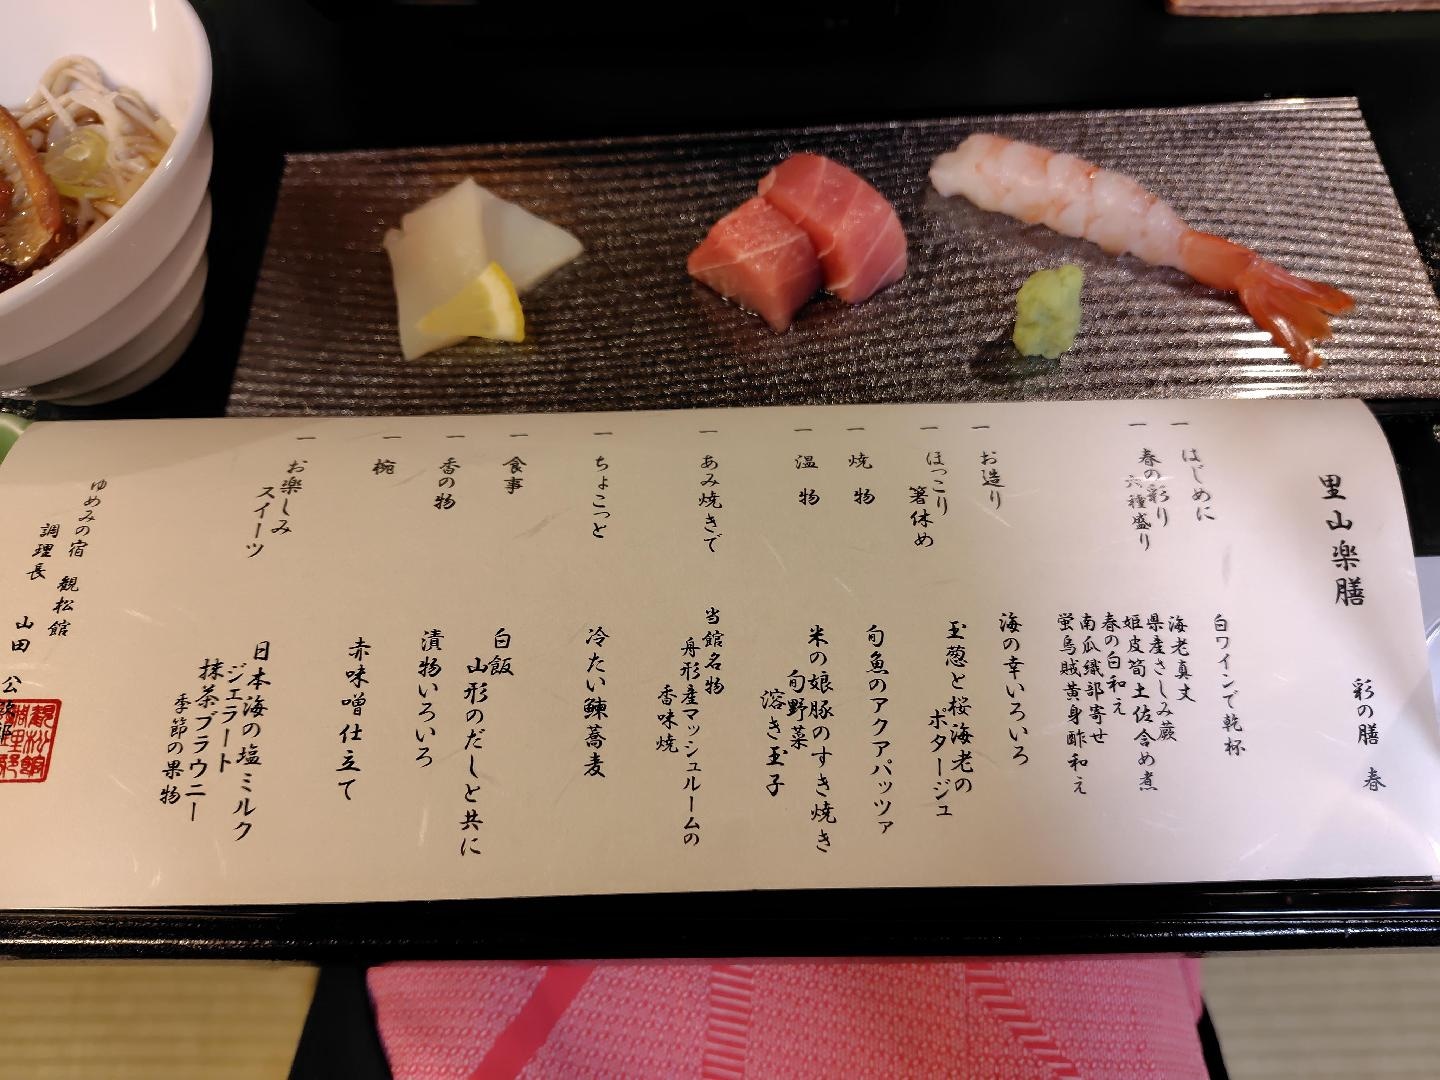 里山楽膳
彩の膳　春
一　はじめに
白ワインで乾杯
一　春の彩り
六種盛り
海老真丈
県産さしみ蕨
姫皮筍土佐含め煮
春の白和え
南瓜織部寄せ
蛍烏賊黄身酢和え
一　お造り
海の幸いろいろ
一　ほっこり
箸休め
玉葱と桜海老の
ポタージュ
一　焼物
旬魚のアクアパッツァ
一　温物
米の娘豚のすき焼き
旬野菜
溶き玉子
一　あみ焼きで
当館名物
舟形産マッシュルームの
香味焼
一　ちょこっと
冷たい鰊蕎麦
一　食事
白飯
山形のだしと共に
一　香の物
漬物いろいろ
一　椀
赤味噌仕立て
一　お楽しみ
スイーツ
日本海の塩ミルク
ジェラート
抹茶ブラウニー
季節の果物
ゆめみの宿　観松館
調理長　山田　公